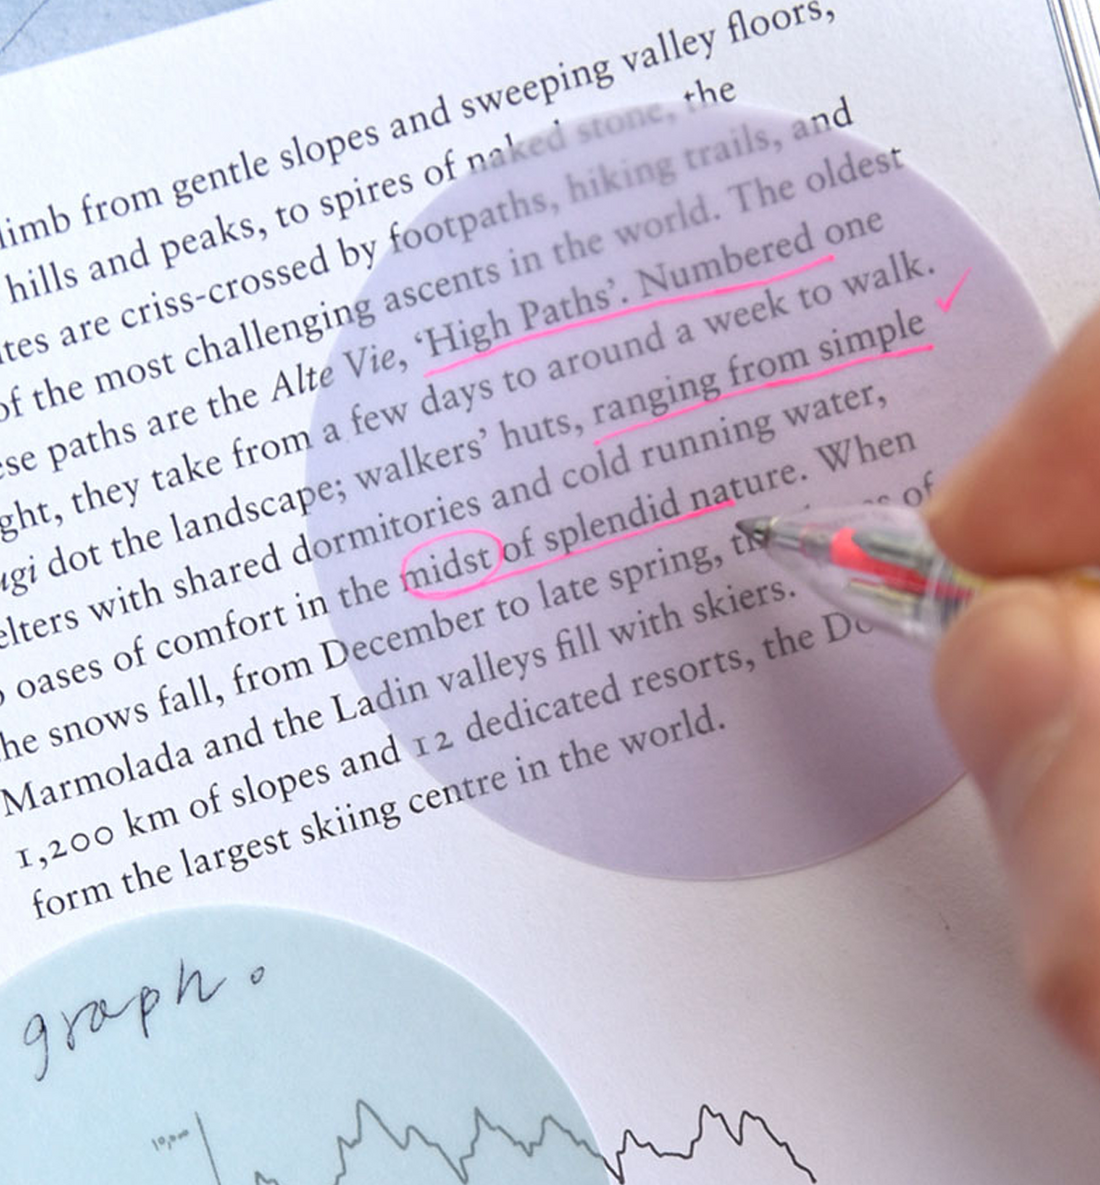 limb from gentle slopes and sweeping valley floors,
hills and peaks, to spires of naked stone, the
ites are criss-crossed by footpaths, hiking trails, and
of the most challenging ascents in the world. The oldest
ese paths are the Alte Vie, ‘High Paths’. Numbered one
ght, they take from a few days to around a week to walk.
ugi dot the landscape; walkers’ huts, ranging from simple
elters with shared dormitories and cold running water,
o oases of comfort in the midst of splendid nature. When
he snows fall, from December to late spring, of
Marmolada and the Ladin valleys fill with skiers.
1,200 km of slopes and 12 dedicated resorts, the Do
form the largest skiing centre in the world.
graph.